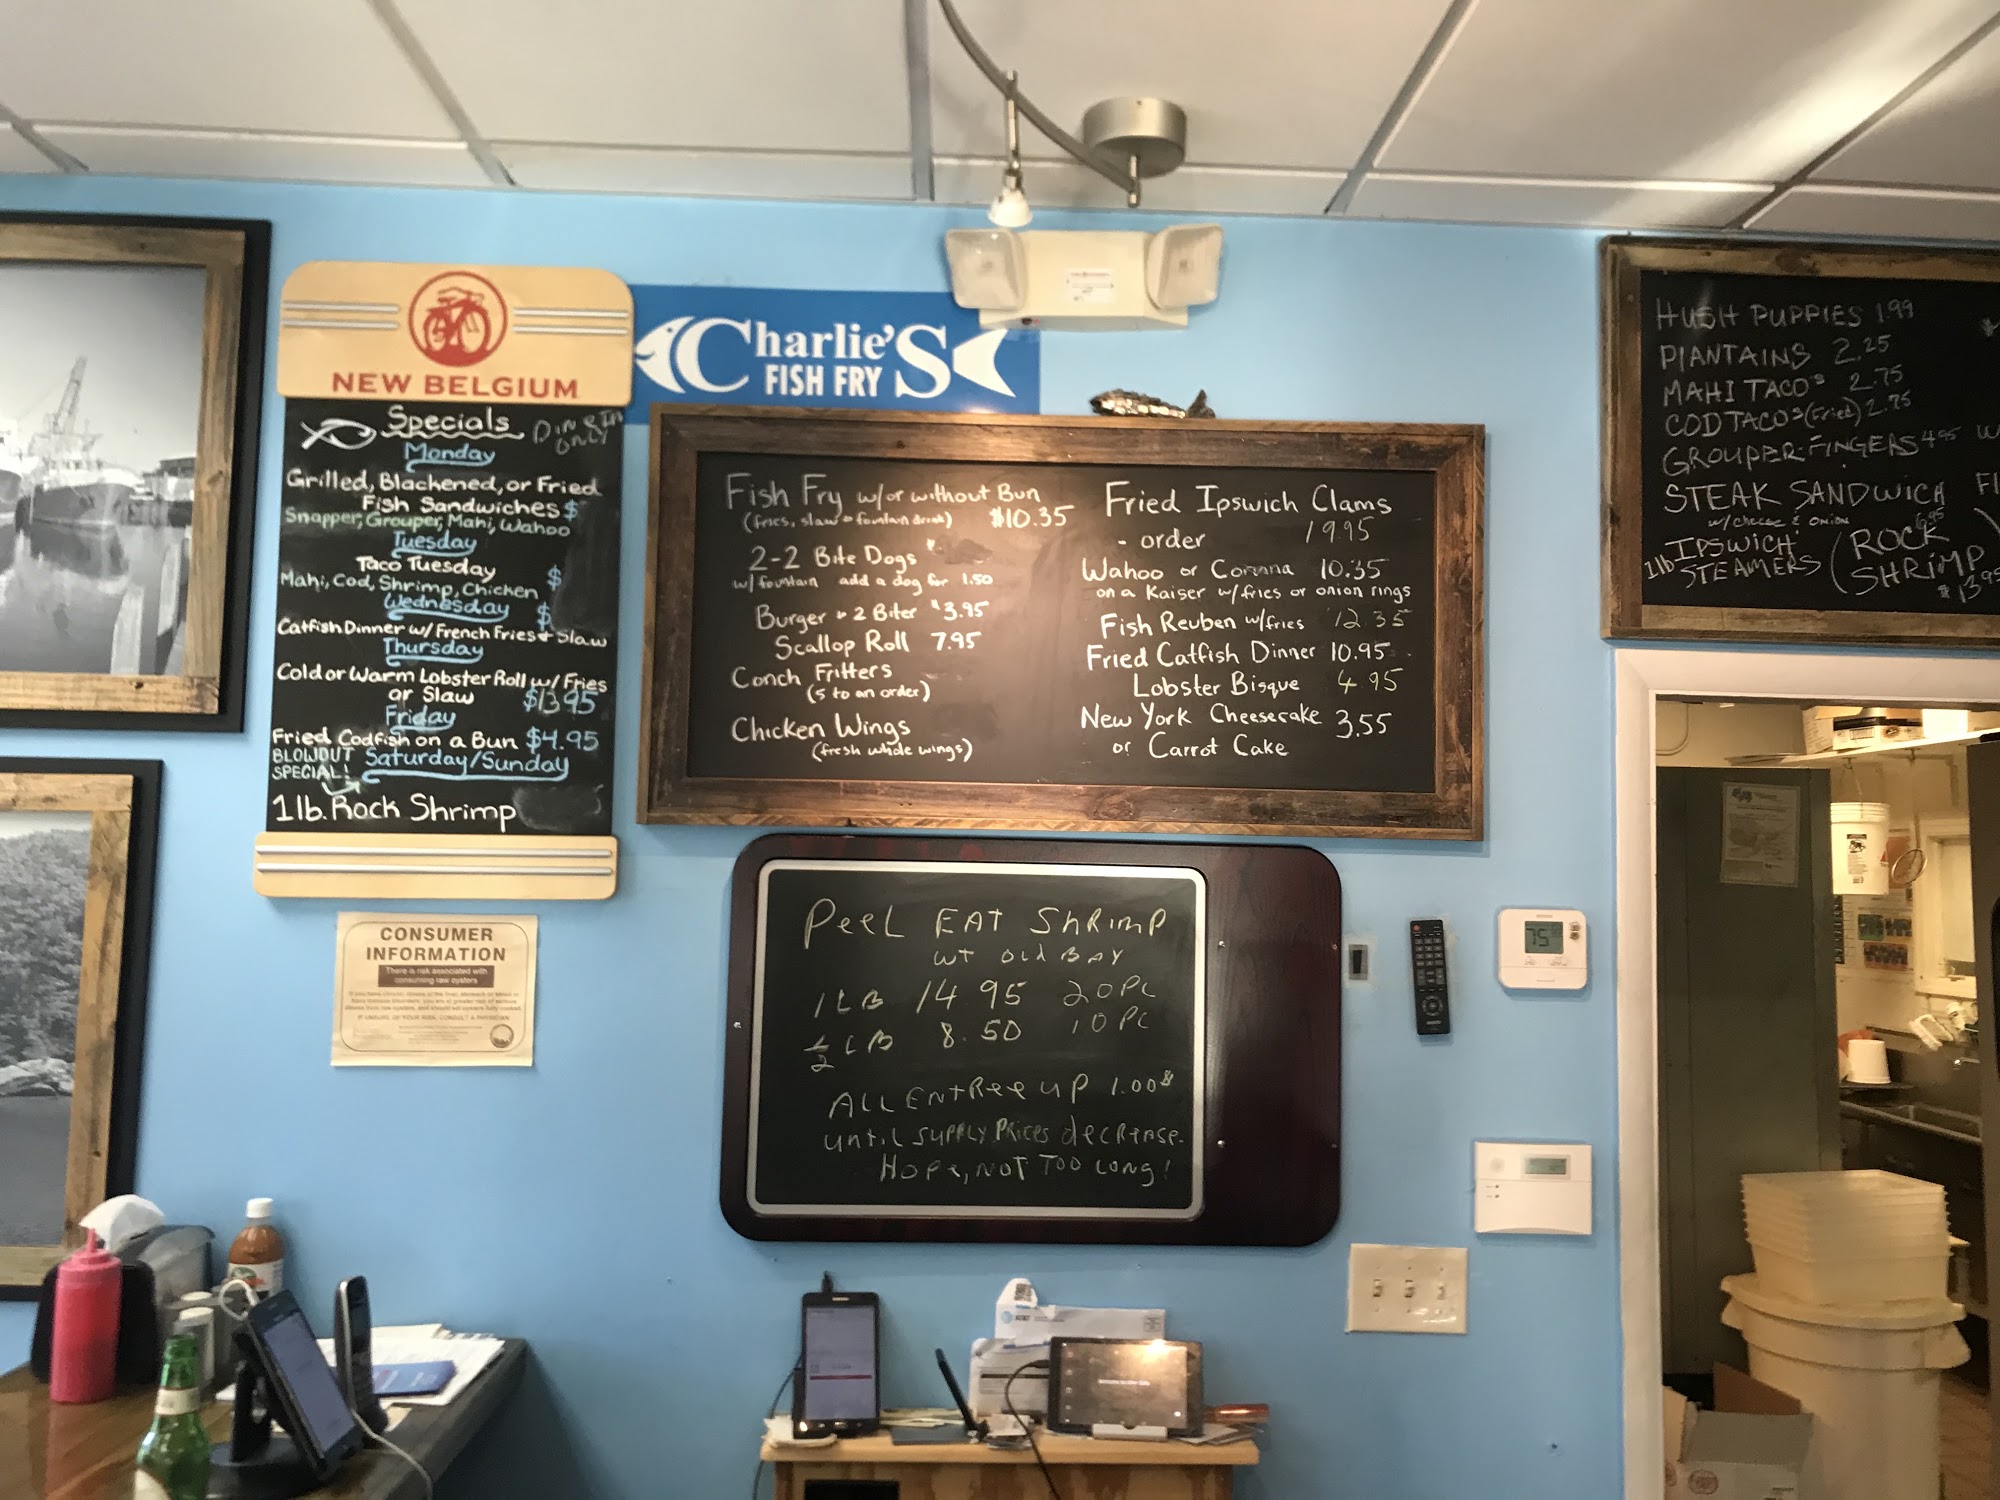 NEW BELGIUM
Specials
DINE IN
ONLY
Monday
Grilled, Blackened, or Fried
Fish Sandwiches $
Snapper, Grouper, Mahi, Wahoo
Tuesday
Taco Tuesday $
Mahi, Cod, Shrimp, Chicken
Wednesday $
Catfish Dinner w/ French Fries + Slaw
Thursday
Cold or Warm Lobster Roll w/ Fries
or Slaw $13.95
Friday
Fried Codfish on a Bun $4.95
BLOWOUT
SPECIAL!
Saturday/Sunday
1 lb. Rock Shrimp
CONSUMER
INFORMATION
There is risk associated with
consuming raw oysters
IF UNSURE OF YOUR RISK, CONSULT A PHYSICIAN
Charlie'S
FISH FRY
Fish Fry w/or without Bun
(fries, slaw + fountain drink) $10.35
2-2 Bite Dogs
w/ fountain add a dog for 1.50
Burger - 2 Biter $3.95
Scallop Roll 7.95
Conch Fritters
(5 to an order)
Chicken Wings
(fresh whole wings)
Fried Ipswich Clams
- order 19.95
Wahoo or Corvina 10.35
on a Kaiser w/fries or onion rings
Fish Reuben w/fries 12.35
Fried Catfish Dinner 10.95
Lobster Bisque 4.95
New York Cheesecake 3.55
or Carrot Cake
PeeL EAT ShRimP
WT OLd BAY
1 LB 14.95 20 PC
1/2 LB 8.50 10 PC
ALL ENtRee up 1.00$
until supply Prices decrease.
Hope, NOT TOO Long!
HUSH PUPPIES 1.99
PLANTAINS 2.25
MAHI TACOS 2.75
COD TACOS (Fried) 2.75
GROUPER-FINGERS 4.95
STEAK SANDWICH
w/cheese & onion 6.95
1lb IPSWICH
STEAMERS
(ROCK
SHRIMP
$13.95
75°
AT&T